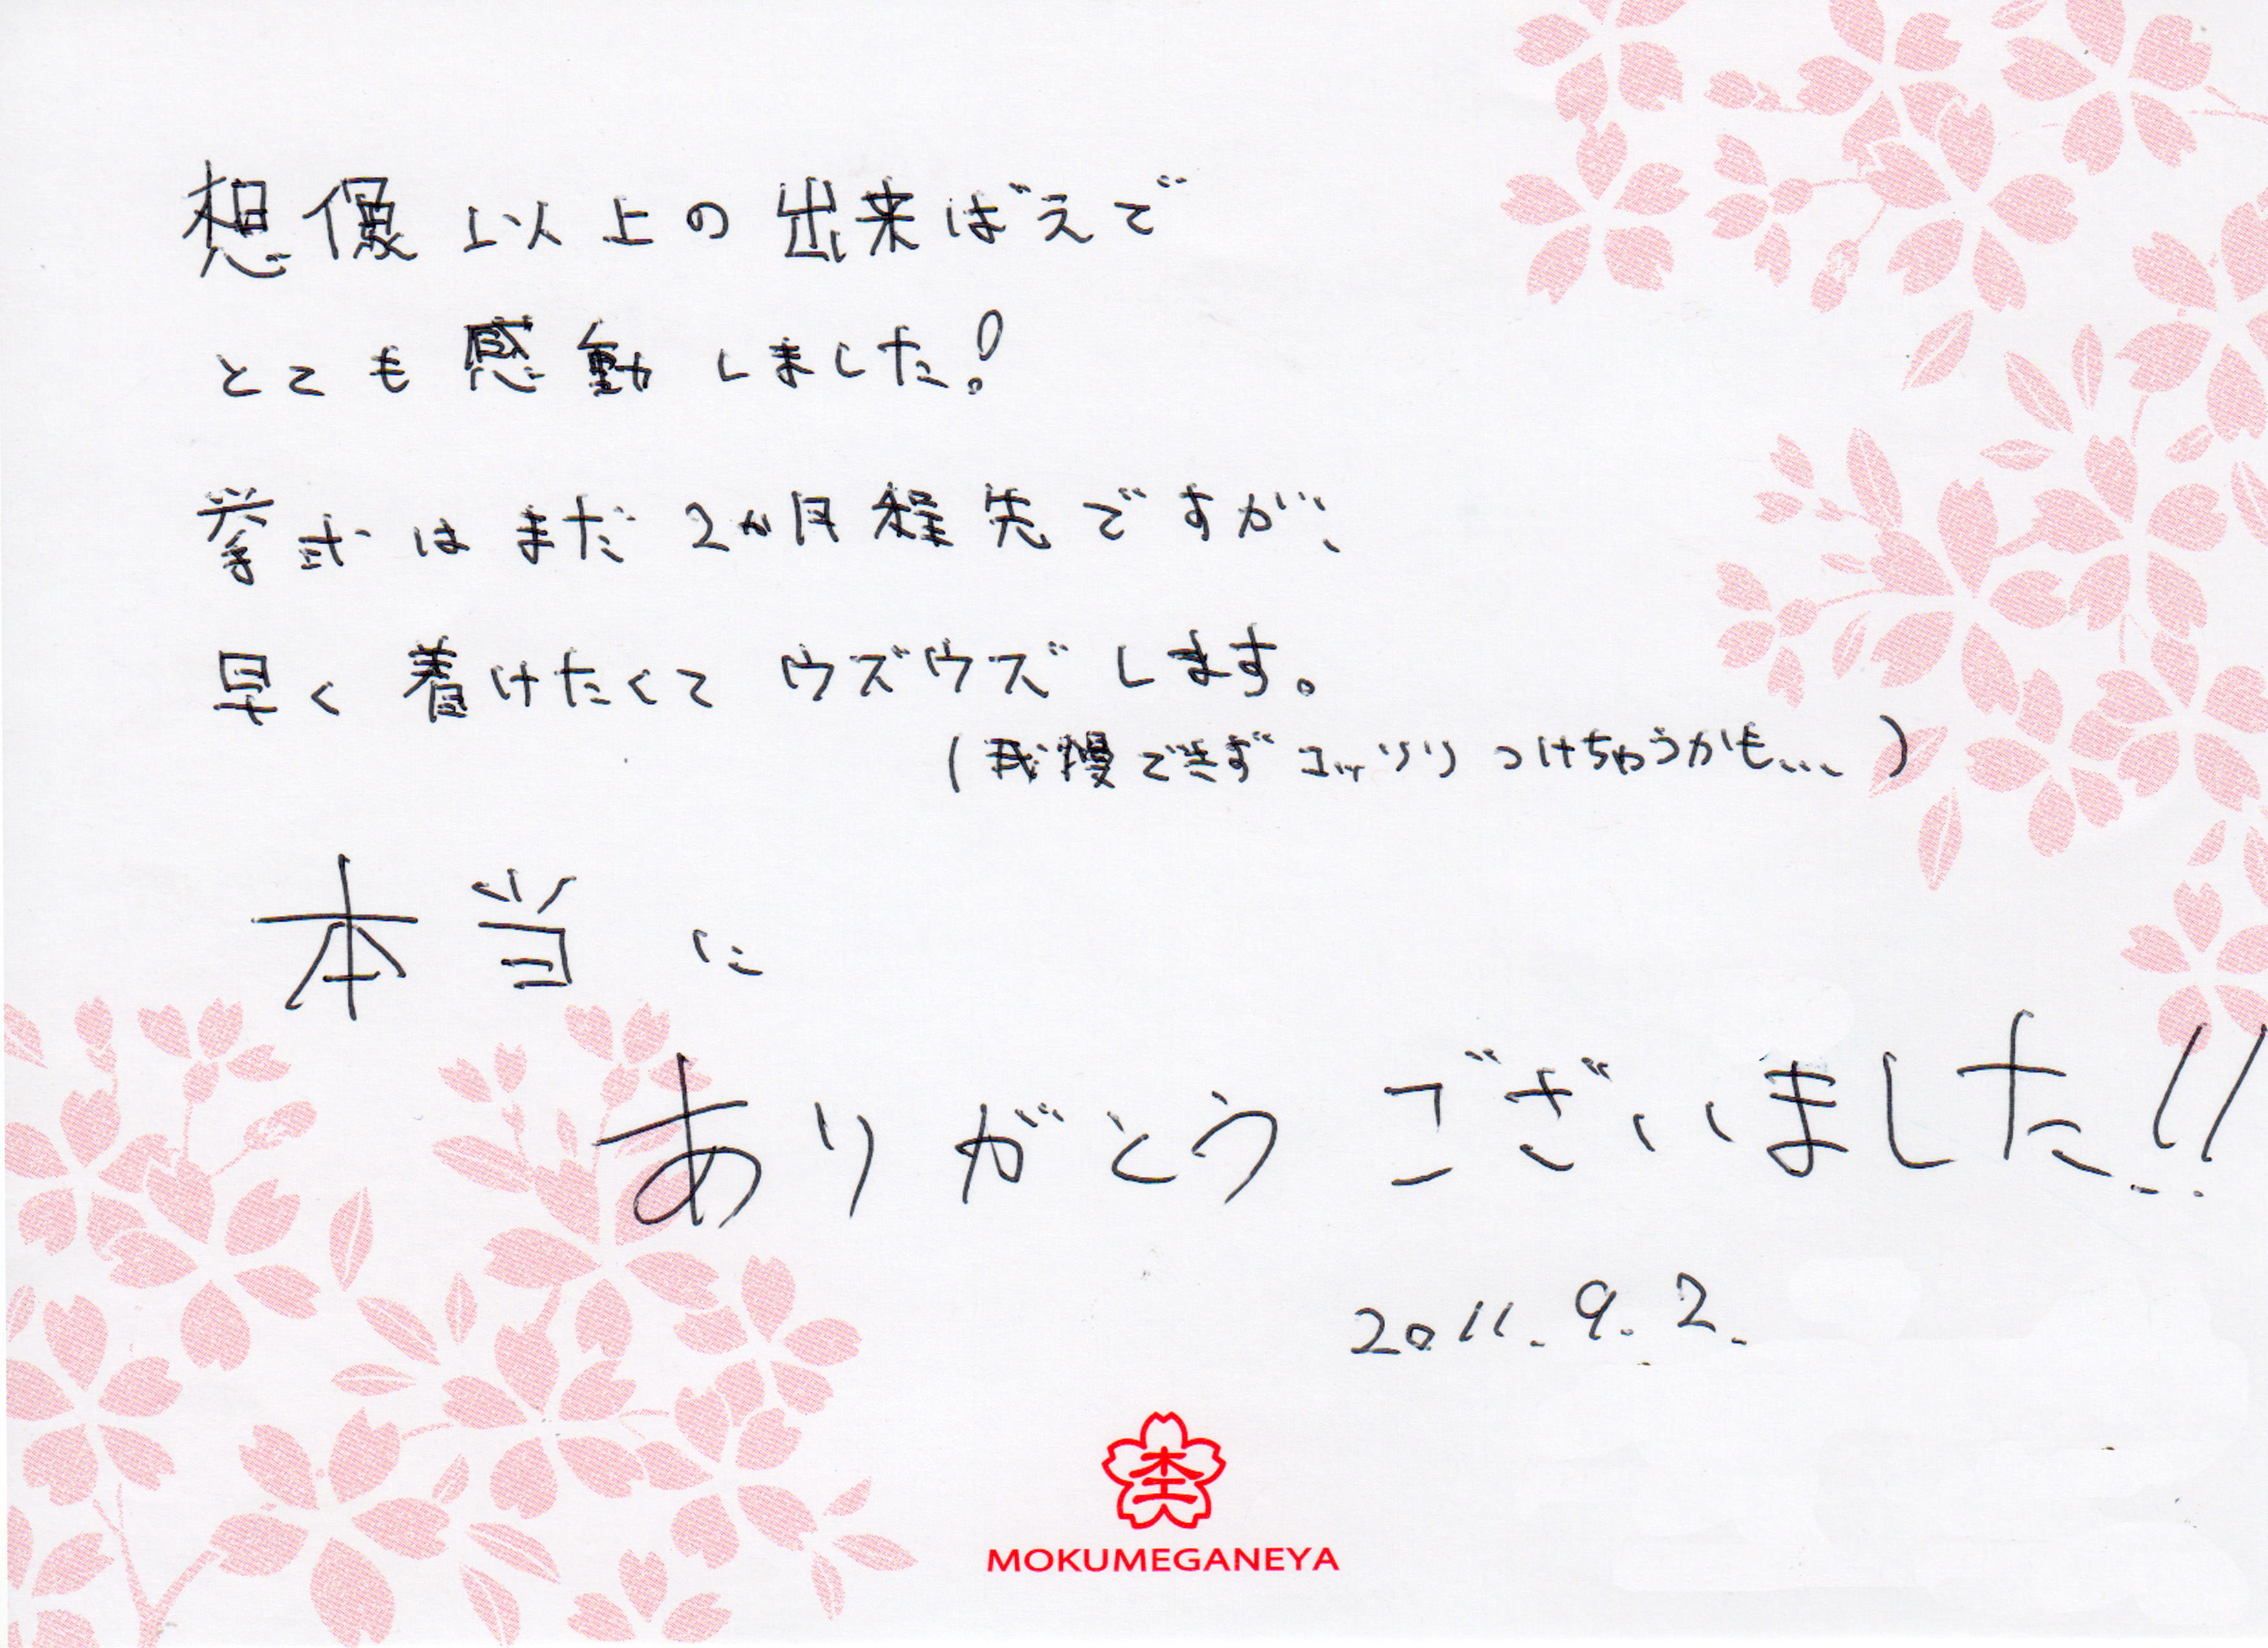 想像以上の出来ばえで
とても感動しました!
挙式はまだ2か月程先ですが、
早く着けたくてウズウズします。
(我慢できずコッソリつけちゃうかも...)
本当に
ありがとうございました!!
2011.9.2.
杢
MOKUMEGANEYA